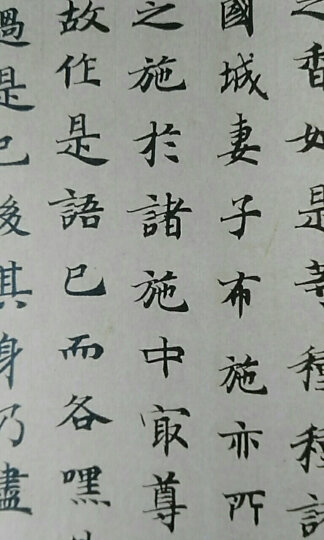 之香如是等種種諸
國城妻子布施亦所
之施於諸施中㝡尊
故作是語已而各嘿
過是已後其身乃盡